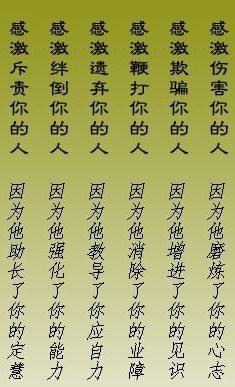 感激伤害你的人
因为他磨炼了你的心志
感激欺骗你的人
因为他增进了你的见识
感激鞭打你的人
因为他消除了你的业障
感激遗弃你的人
因为他教导了你应自力
感激绊倒你的人
因为他强化了你的能力
感激斥责你的人
因为他助长了你的定慧